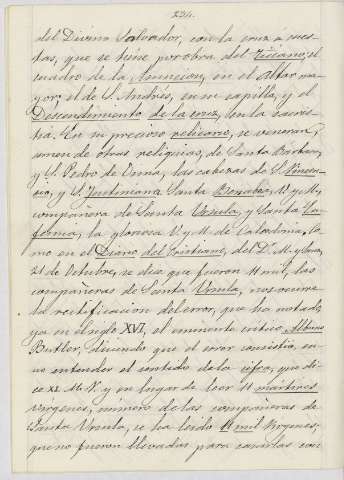 234.
del Divino Salvador, con la cruz á cues-
tas, que se tiene por obra del Ticiano; el
cuadro de la Asuncion, en el altar ma-
yor; el de S. Andrés, en su capilla, y el
Descendimiento de la cruz, en la sacris-
tia. En su precioso relicario, se veneran,
amen de otras reliquias, de Santa Bárbara,
y S. Pedro de Osma, las cabezas de S.
y S. Santa V. y M.,
compañera de Santa Ursula, y Santa
la gloriosa V. y M. de Co-
mo en el Diario del Cristiano, del Dr. M. y
21 de Octubre, se dice que fueron 11 mil, las
compañeras de Santa Ursula, nos ocurre
la rectificacion del error, que ha notado,
ya en el siglo XVI, el eminente crítico Albano
Butler, diciendo que el error consistia en
no entender el sentido de la cifra, que di-
ce XI. M. V. y en lugar de leer 11 mártires
vírgenes, número de las compañeras de
Santa Ursula, se ha leido 11 mil vírgenes,
que no fueron llevadas para casarlas con